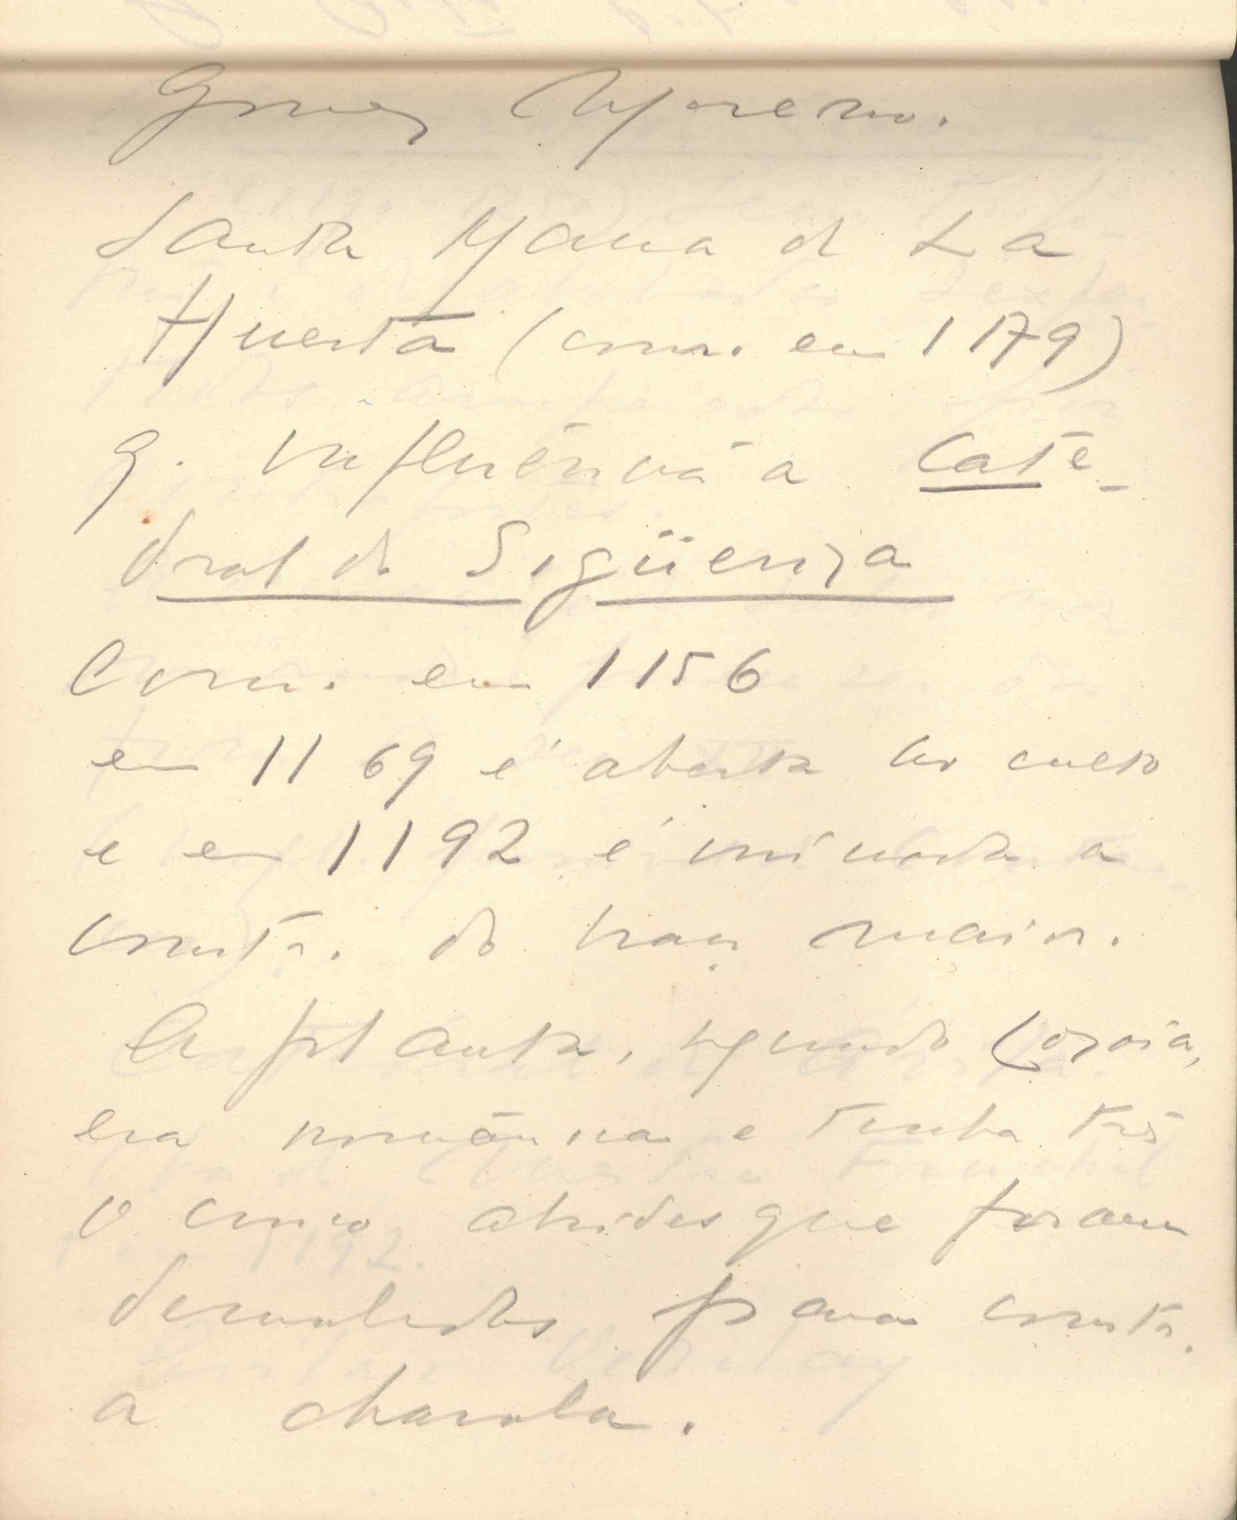 Gomez Moreno.
Santa Maria de La
Huerta (com. em 1179)
q. influência a Cate-
dral de Sigüenza
Com. em 1156
em 1169 é aberta ao culto
e em 1192 é iniciada a
constr. do braço maior.
A planta, segundo Lozoia,
era românica e tinha três
o cinco absides que foram
demolidas para constr.
a charola.